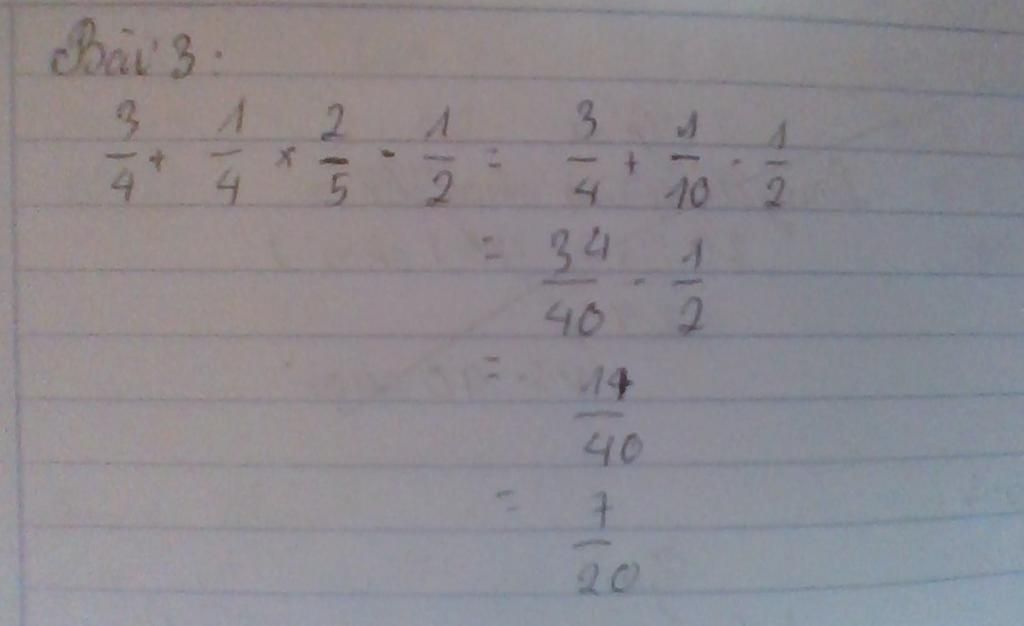 Bài 3:
3/4 + 1/4 × 2/5 - 1/2 = 3/4 + 1/10 - 1/2
= 34/40 - 1/2
= 14/40
= 7/20